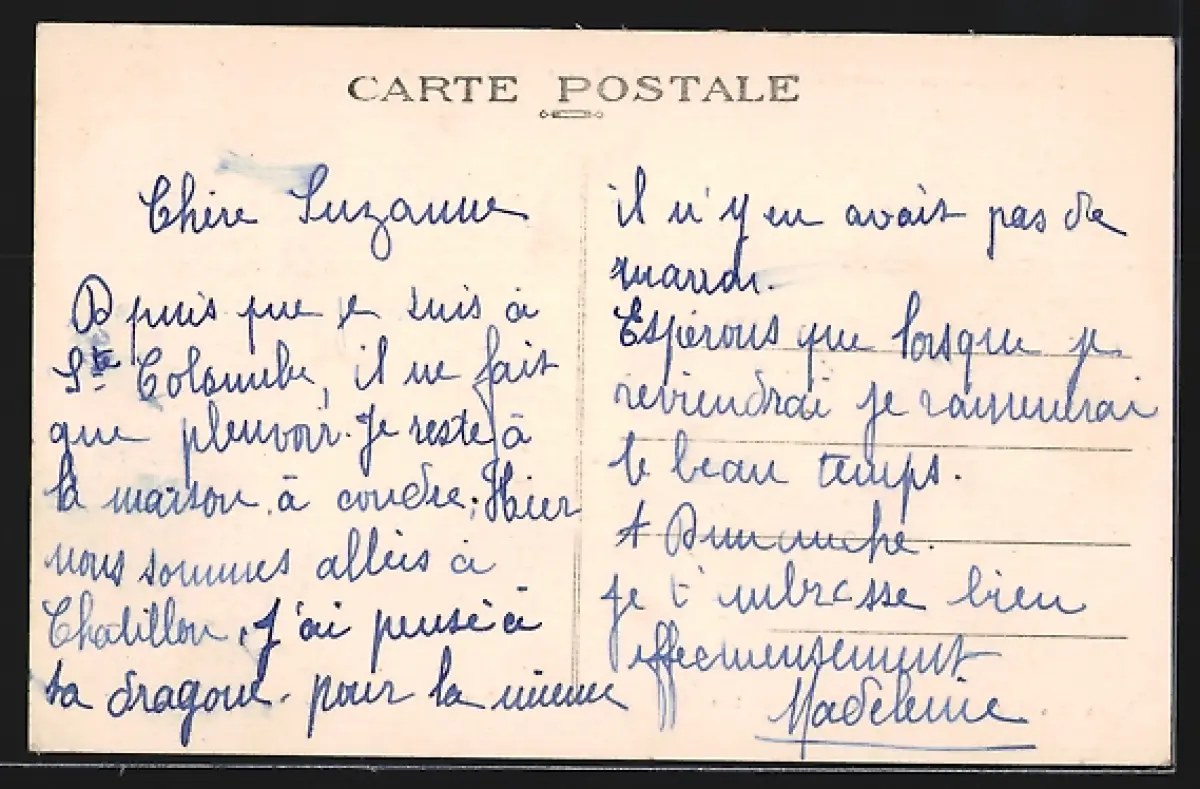 CARTE POSTALE
Chère Suzanne
Depuis que je suis à
Ste Colombe, il ne fait
que pleuvoir. Je reste à
la maison à coudre. Hier
nous sommes allées à
Chatillon, j'ai pensé à
ta dragone. pour la mienne
il n'y en avait pas de
marron.
Espérons que lorsque je
reviendrai je ramènerai
le beau temps.
A Dimanche.
Je t'embrasse bien
Madeleine